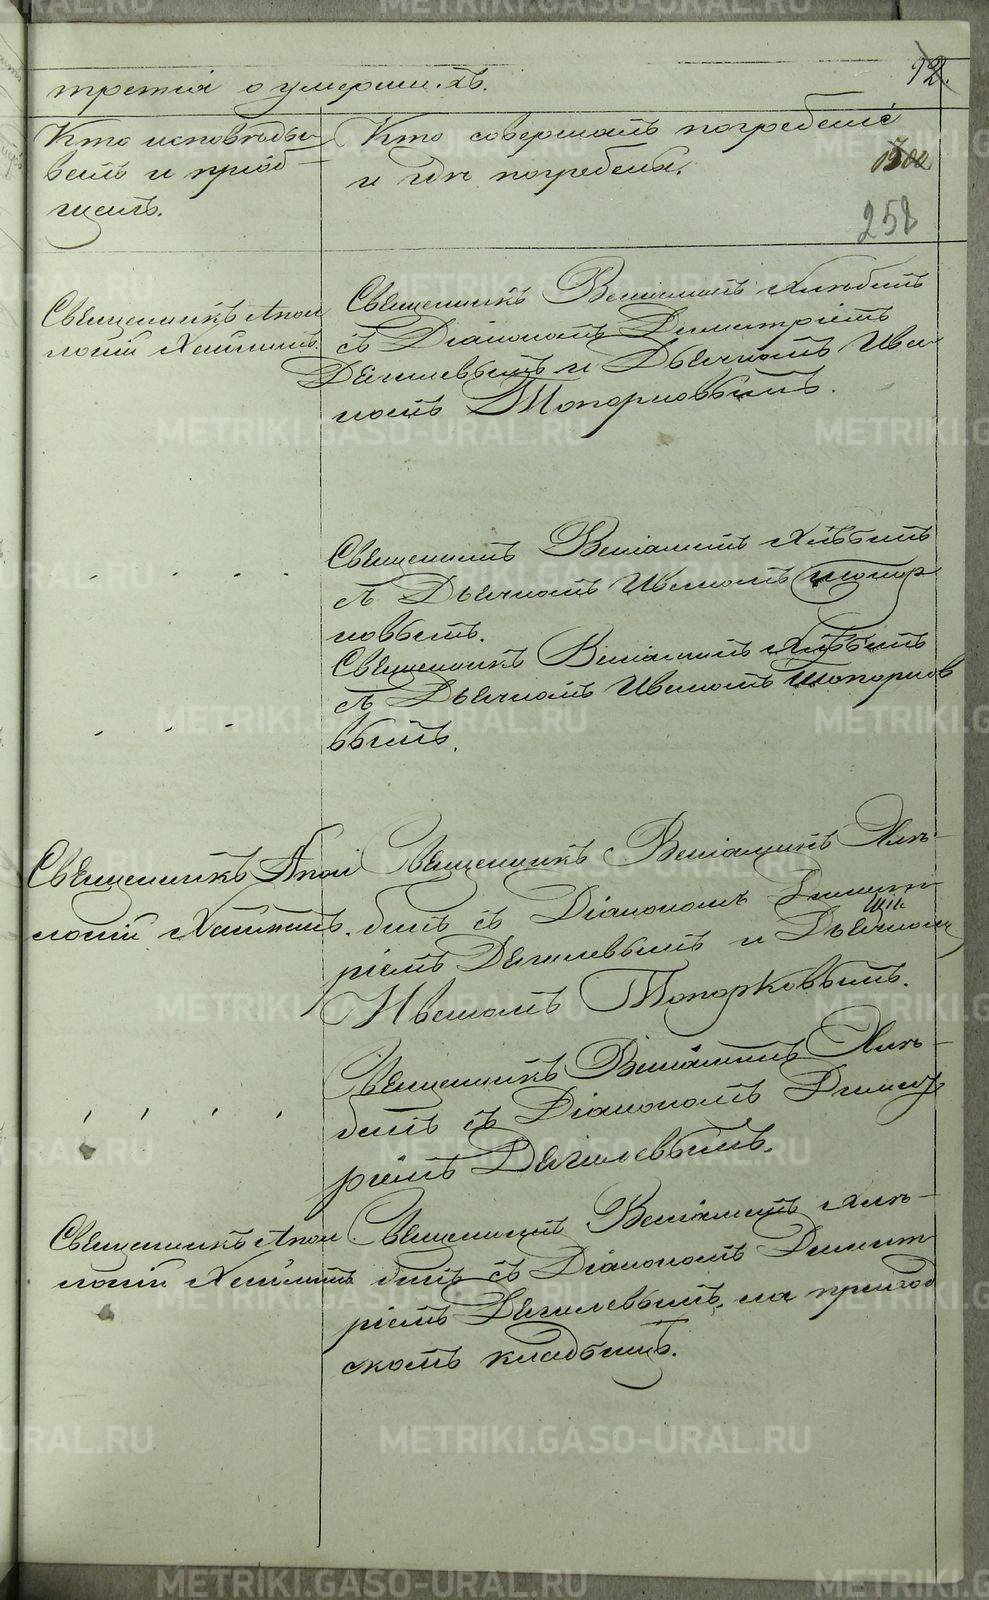 третія о умерших.хъ.
92.
Кто исповѣды-
валъ и пріоб
щалъ.
Кто совершалъ погребеніе
и гдѣ погребены.
258
Священникъ Апол
логій Хайминъ.
Священникъ Веніаминъ Хлѣбинъ
съ Діакономъ Димитріемъ
Дягилевымъ и Дьячкомъ Ива
номъ Топорковымъ.
Священникъ Веніаминъ Хлѣбинъ
съ Дьячкомъ Иваномъ Топор
ковымъ.
Священникъ Веніаминъ Хлѣбинъ
съ Дьячкомъ Иваномъ Топорков
вымъ.
Священникъ Апол
логій Хайминъ.
Священникъ Веніаминъ Хлѣ-
бинъ съ Діакономъ Димит-
ріемъ Дягилевымъ и Дьячкомъ
Иваномъ Топорковымъ.
Священникъ Веніаминъ Хлѣ-
бинъ съ Діакономъ Димит
ріемъ Дягилевымъ.
Священникъ Апол
логій Хайминъ
Священникъ Веніаминъ Хлѣ-
бинъ съ Діакономъ Димит
ріемъ Дягилевымъ, на приход
скомъ кладбищѣ.
METRIKI.GASO-URAL.RU